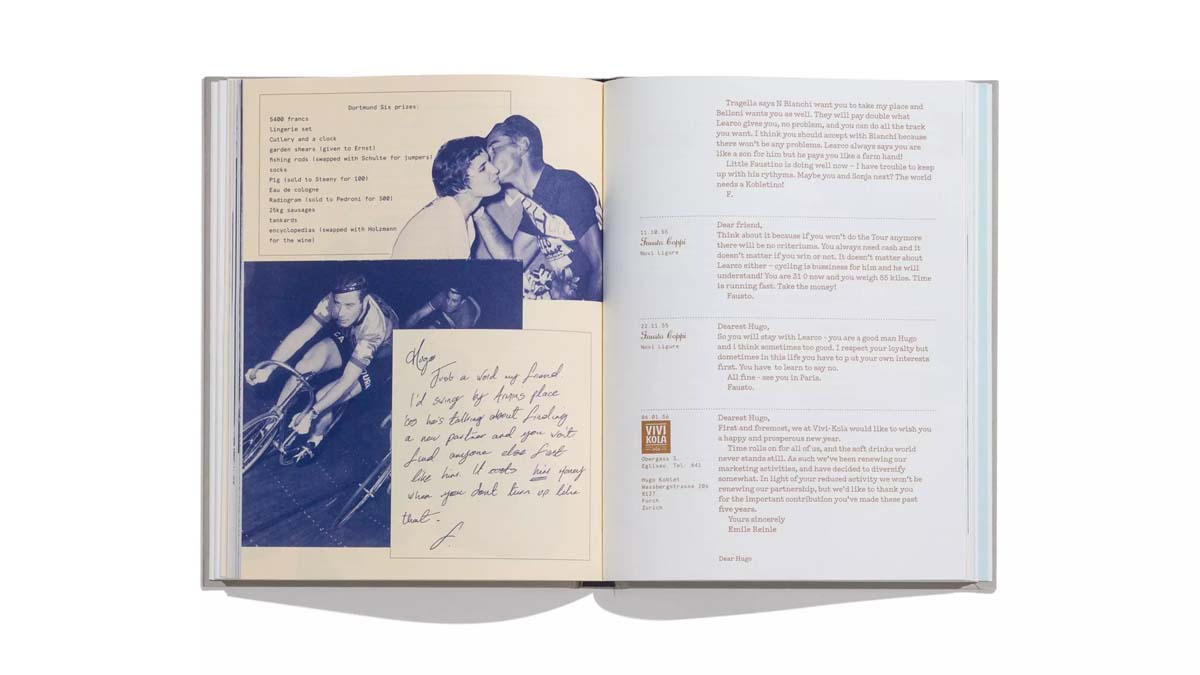 Dortmund Six prizes:
5400 francs
Lingerie set
Cutlery and a clock
garden shears (given to Ernst)
fishing rods (swapped with Schulte for jumpers)
socks
Pig (sold to Steeny for 100)
Eau de cologne
Radiogram (sold to Pedroni for 500)
25kg sausages
tankards
encyclopedias (swapped with Holzmann
for the wine)
Hugo
Just a word my friend.
I'd swing by Armins place
'cos he's talking about finding
a new partner and you won't
find anyone else fast
like him. It costs him money
when you dont turn up like
that.
f.
Tragella says N Bianchi want you to take my place and
Belloni wants you as well. They will pay double what
Learco gives you, no problem, and you can do all the track
you want. I think you should accept with Bianchi because
there won't be any problems. Learco always says you are
like a son for him but he pays you like a farm hand!
Little Faustino is doing well now – I have trouble to keep
up with his rythyms. Maybe you and Sonja next? The world
needs a Kobletino!
F.
11.10.55
Fausto Coppi
Novi Ligure
Dear friend,
Think about it because if you won't do the Tour anymore
there will be no criteriums. You always need cash and it
doesn't matter if you win or not. It doesn't matter about
Learco either – cycling is bussiness for him and he will
understand! You are 31 0 now and you weigh 85 kilos. Time
is running fast. Take the money!
Fausto.
22.11.55
Fausto Coppi
Novi Ligure
Dearest Hugo,
So you will stay with Learco - you are a good man Hugo
and i think sometimes too good. I respect your loyalty but
dometimes in this life you have to p ut your own interests
first. You have to learn to say no.
All fine - see you in Paris.
Fausto.
06.01.56
VIVI
KOLA
Obergass 3.
Eglisau. Tel. 641
Hugo Koblet
Wassbergstrasse 20a
8127
Forch
Zurich
Dearest Hugo,
First and foremost, we at Vivi-Kola would like to wish you
a happy and prosperous new year.
Time rolls on for all of us, and the soft drinks world
never stands still. As such we've been renewing our
marketing activities, and have decided to diversify
somewhat. In light of your reduced activity we won't be
renewing our partnership, but we'd like to thank you
for the important contribution you've made these past
five years.
Yours sincerely
Emile Reinle
Dear Hugo